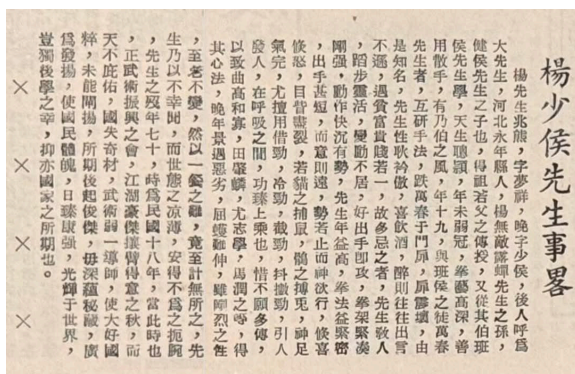 楊少侯先生事畧
楊先生兆熊，字夢祥，晚字少侯，後人呼爲
大先生，河北永年縣人，楊無敵露蟬先生之孫，
健侯先生之子也，得祖若父之傳授，又從其伯班
侯先生學，天生聰穎，年未弱冠，拳藝高深，善
用散手，有乃伯之風，年十九，與班侯之徒萬春
先生者，互研手法，跌萬春于門扉，扉震壞，由
是知名，先生性耿矜傲，喜飲酒，醉則往往出言
不遜，遇貧富貴賤若一，故多忌之者，先生教人
，蹈步靈活，變動不居，好出手卽攻，拳架緊凑
剛强，動作快沉有勢，先生年益高，拳法益緊密
，出手甚短，而意則遠，勢若止而神欲行，倏喜
倏怒，目眥盡裂，若貓之捕鼠，鶻之搏兎，神足
氣完，尤擅用借勁，冷勁，截勁，抖擻勁，引人
發人，在呼吸之間，功臻上乘也，惜不願多傳，
以致曲高和寡，田肇麟，尤志學，馬潤之等，得
其心法，晚年景遇惡劣，屈蠖難伸，雖剛烈之性
，至老不變，然以一餐之難，竟至計無所之，先
生乃以不幸聞，而世態之凉薄，安得不爲之扼腕
，先生之歿年七十，時爲民國十八年，當此時也
，正武術振興之會，江湖豪傑攘臂得意之秋，而
天不庇佑，國失奇材，武術弱一導師，使大好國
粹，未能闡揚，所期後起俊傑，毋深蘊秘藏，廣
爲發揚，使國民體魄，日臻康强，光輝于世界，
豈獨後學之幸，抑亦國家之所期也。